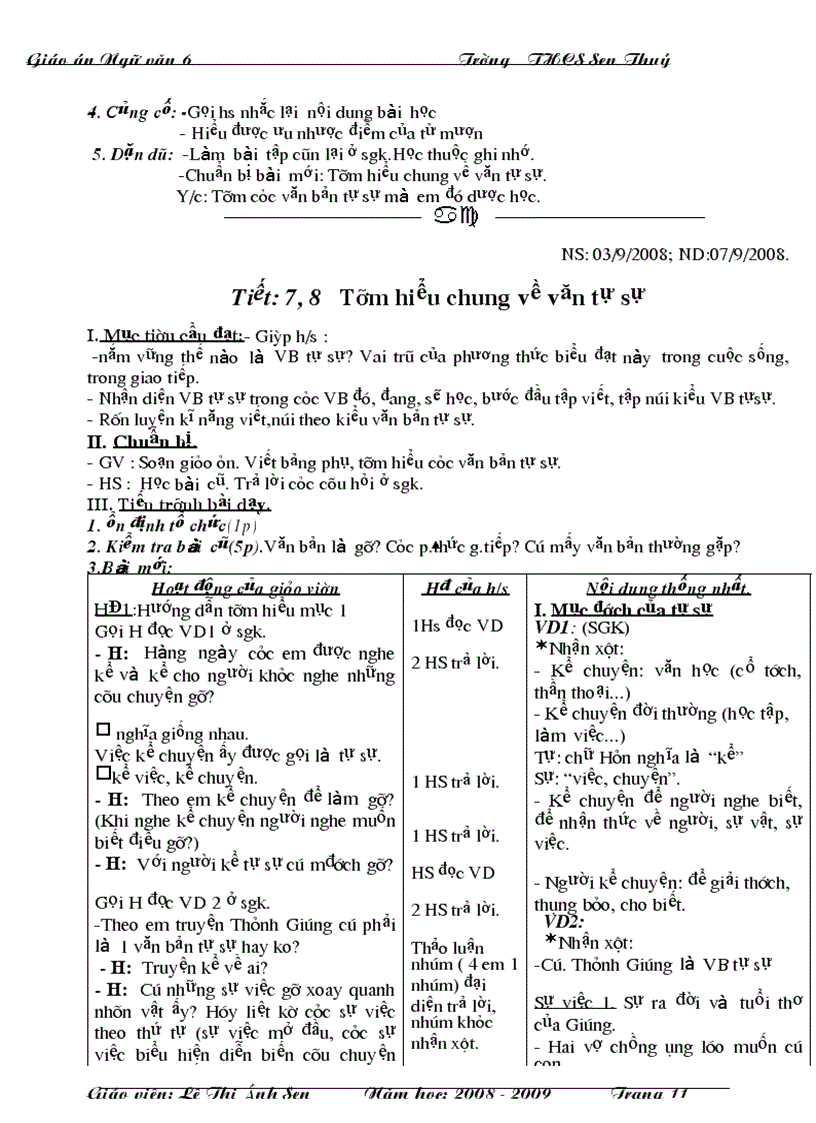 Giáo án Ngữ văn 6 Trờng THCS Sen Thuỷ
4. Củng cố: -Gọi hs nhắc lại nội dung bài học
- Hiểu được ưu nhược điểm của từ mượn
5. Dặn dũ: -Làm bài tập cũn lại ở sgk.Học thuộc ghi nhớ.
-Chuẩn bị bài mới: Tỡm hiểu chung về văn tự sự.
Y/c: Tỡm cỏc văn bản tự sự mà em đó dược học.
NS: 03/9/2008; ND:07/9/2008.
Tiết: 7, 8 Tỡm hiểu chung về văn tự sự
I. Mục tiờu cần đạt:- Giỳp h/s :
-nắm vững thế nào là VB tự sự? Vai trũ của phương thức biểu đạt này trong cuộc sống,
trong giao tiếp.
- Nhận diện VB tự sự trong cỏc VB đó, đang, sẽ học, bước đầu tập viết, tập núi kiểu VB tựsự.
- Rốn luyện kĩ năng viết,núi theo kiểu văn bản tự sự.
II. Chuẩn bị.
- GV : Soạn giỏo ỏn. Viết bảng phụ, tỡm hiểu cỏc văn bản tự sự.
- HS : Học bài cũ. Trả lời cỏc cõu hỏi ở sgk.
III. Tiến trỡnh bài dạy.
1. ổn định tổ chức(1p)
2. Kiểm tra bài cũ(5p).Văn bản là gỡ? Cỏc p.thức g.tiếp? Cú mấy văn bản thường gặp?
3.Bài mới:
Hoạt động của giỏo viờn
HĐ1:Hướng dẫn tỡm hiểu mục 1
Gọi H đọc VD1 ở sgk.
- H: Hàng ngày cỏc em được nghe
kể và kể cho người khỏc nghe những
cõu chuyện gỡ?
nghĩa giống nhau.
Việc kể chuyện ấy được gọi là tự sự.
kể việc, kể chuyện.
- H: Theo em kể chuyện để làm gỡ?
(Khi nghe kể chuyện người nghe muốn
biết điều gỡ?)
- H: Với người kể tự sự cú mđớch gỡ?
Gọi H đọc VD 2 ở sgk.
-Theo em truyện Thỏnh Giúng cú phải
là 1 văn bản tự sự hay ko?
- H: Truyện kể về ai?
- H: Cú những sự việc gỡ xoay quanh
nhõn vật ấy? Hóy liệt kờ cộc sự việc
theo thứ tự (sự việc mở đầu, cỏc sự
việc biểu hiện diễn biến cõu chuyện
Hđ của h/s
1Hs đọc VD
2 HS trả lời.
1 HS trả lời.
1 HS trả lời.
HS đọc VD
2 HS trả lời.
Thảo luận
nhúm ( 4 em 1
nhúm) đại
diện trả lời,
nhúm khỏc
nhận xột.
Nội dung thống nhất.
I. Mục đớch của tự sự
VD1: (SGK)
*Nhận xột:
- Kể chuyện: văn học (cổ tớch,
thần thoại...)
- Kể chuyện đời thường (học tập,
làm việc...)
Tự: chữ Hỏn nghĩa là “kể”
Sự: “việc, chuyện”.
- Kể chuyện để người nghe biết,
để nhận thức về người, sự vật, sự
việc.
- Người kể chuyện: để giải thớch,
thung bỏo, cho biết.
VD2:
*Nhận xột:
-Cú. Thỏnh Giúng là VB tự sự
Sự việc 1. Sự ra đời và tuổi thơ
của Giúng.
- Hai vợ chồng ụng lóo muốn cú
con
Giáo viên: Lê Thị Ánh Sen Năm học: 2008 - 2009 Trang 11